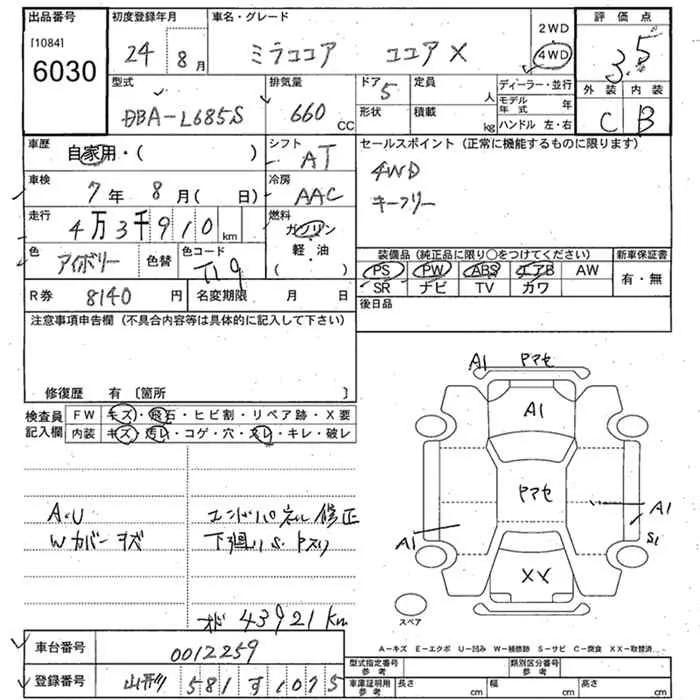 出品番号 初度登録年月 車名・グレード 2WD 評価点
[1084] 6030 24 8月 ミラココア ココア X 4WD 3.5
外装 内装
C B
型式 排気量 ドア 定員 ディーラー・並行
DBA-L685S 660 CC 5 人 モデル年式 年
形状 積載 kg ハンドル 左・右
車歴 自家用・( ) シフト AT セールスポイント (正常に機能するものに限ります)
車検 7年 8月( 日) 冷房 AAC 4WD
キーフリー
走行 4万3千910km 燃料 ガソリン
軽・油
( )
色 アイボリー 色替 色コード T19
装備品 (純正品に限り〇をつけてください) 新車保証書
PS PW ABS エアB AW 有・無
SR ナビ TV カワ
R券 8140円 名変期限 月 日 後日品
注意事項申告欄 (不具合内容等は具体的に記入して下さい)
修復歴 有 〔箇所 〕
検査員記入欄 FW キズ・飛石・ヒビ割・リペア跡・X要
内装 キズ・汚レ・コゲ・穴・スレ・キレ・破レ
A・U エンドパネル修正
Wカバーキズ 下廻りS・
43921km
A1 ヤマセ
A1
ヤマセ
A1
A1 S1
XX
スペア
A-キズ E-エクボ U-凹み W-補修跡 S-サビ C-腐食 XX-取替済
車台番号 0012259
型式指定番号 参考 類別区分番号 参考
登録番号 山形 581 す 1075
車庫証明用 参考 長さ cm 幅 cm 高さ cm